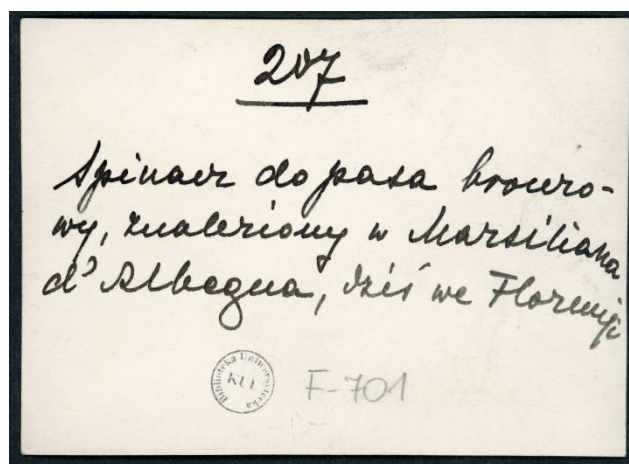 207
Spinacz do pasa bronzo-
wy, znaleziony w Marsiliana
d'Albegna, dziś we Florencji
Biblioteka Uniwersytecka
KUL
F-701